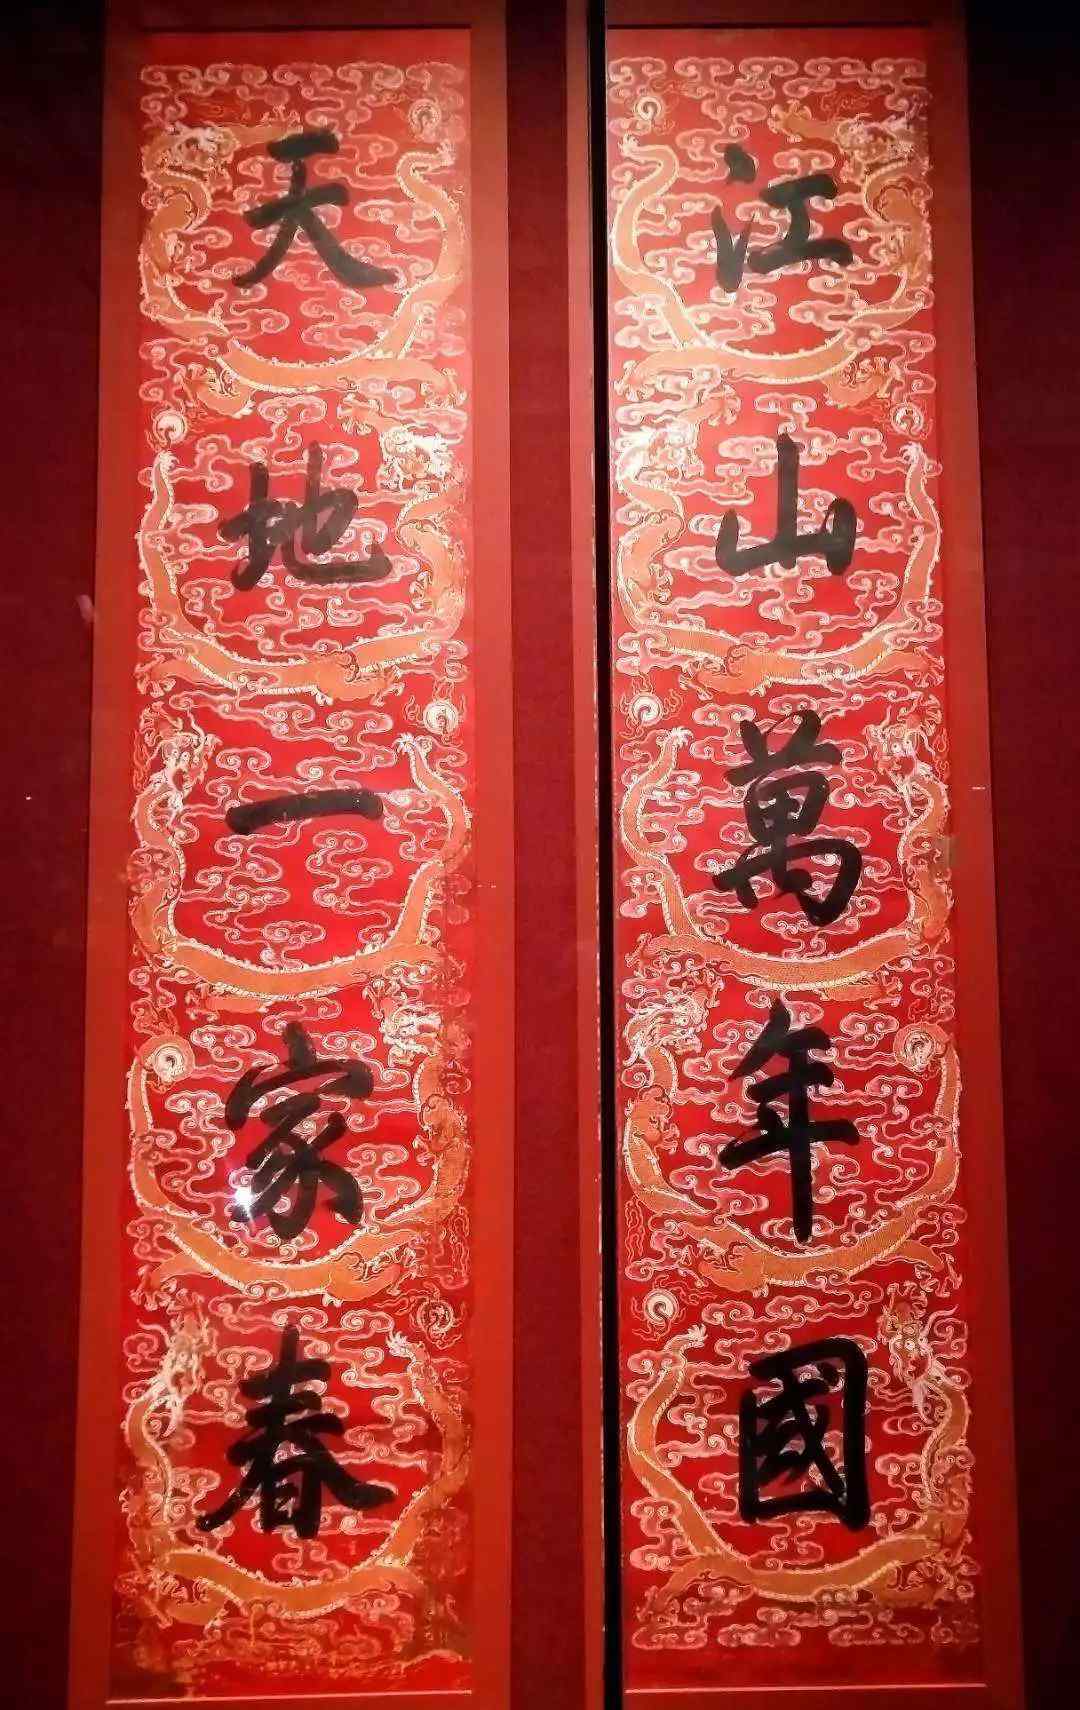 江山萬年國
天地一家春